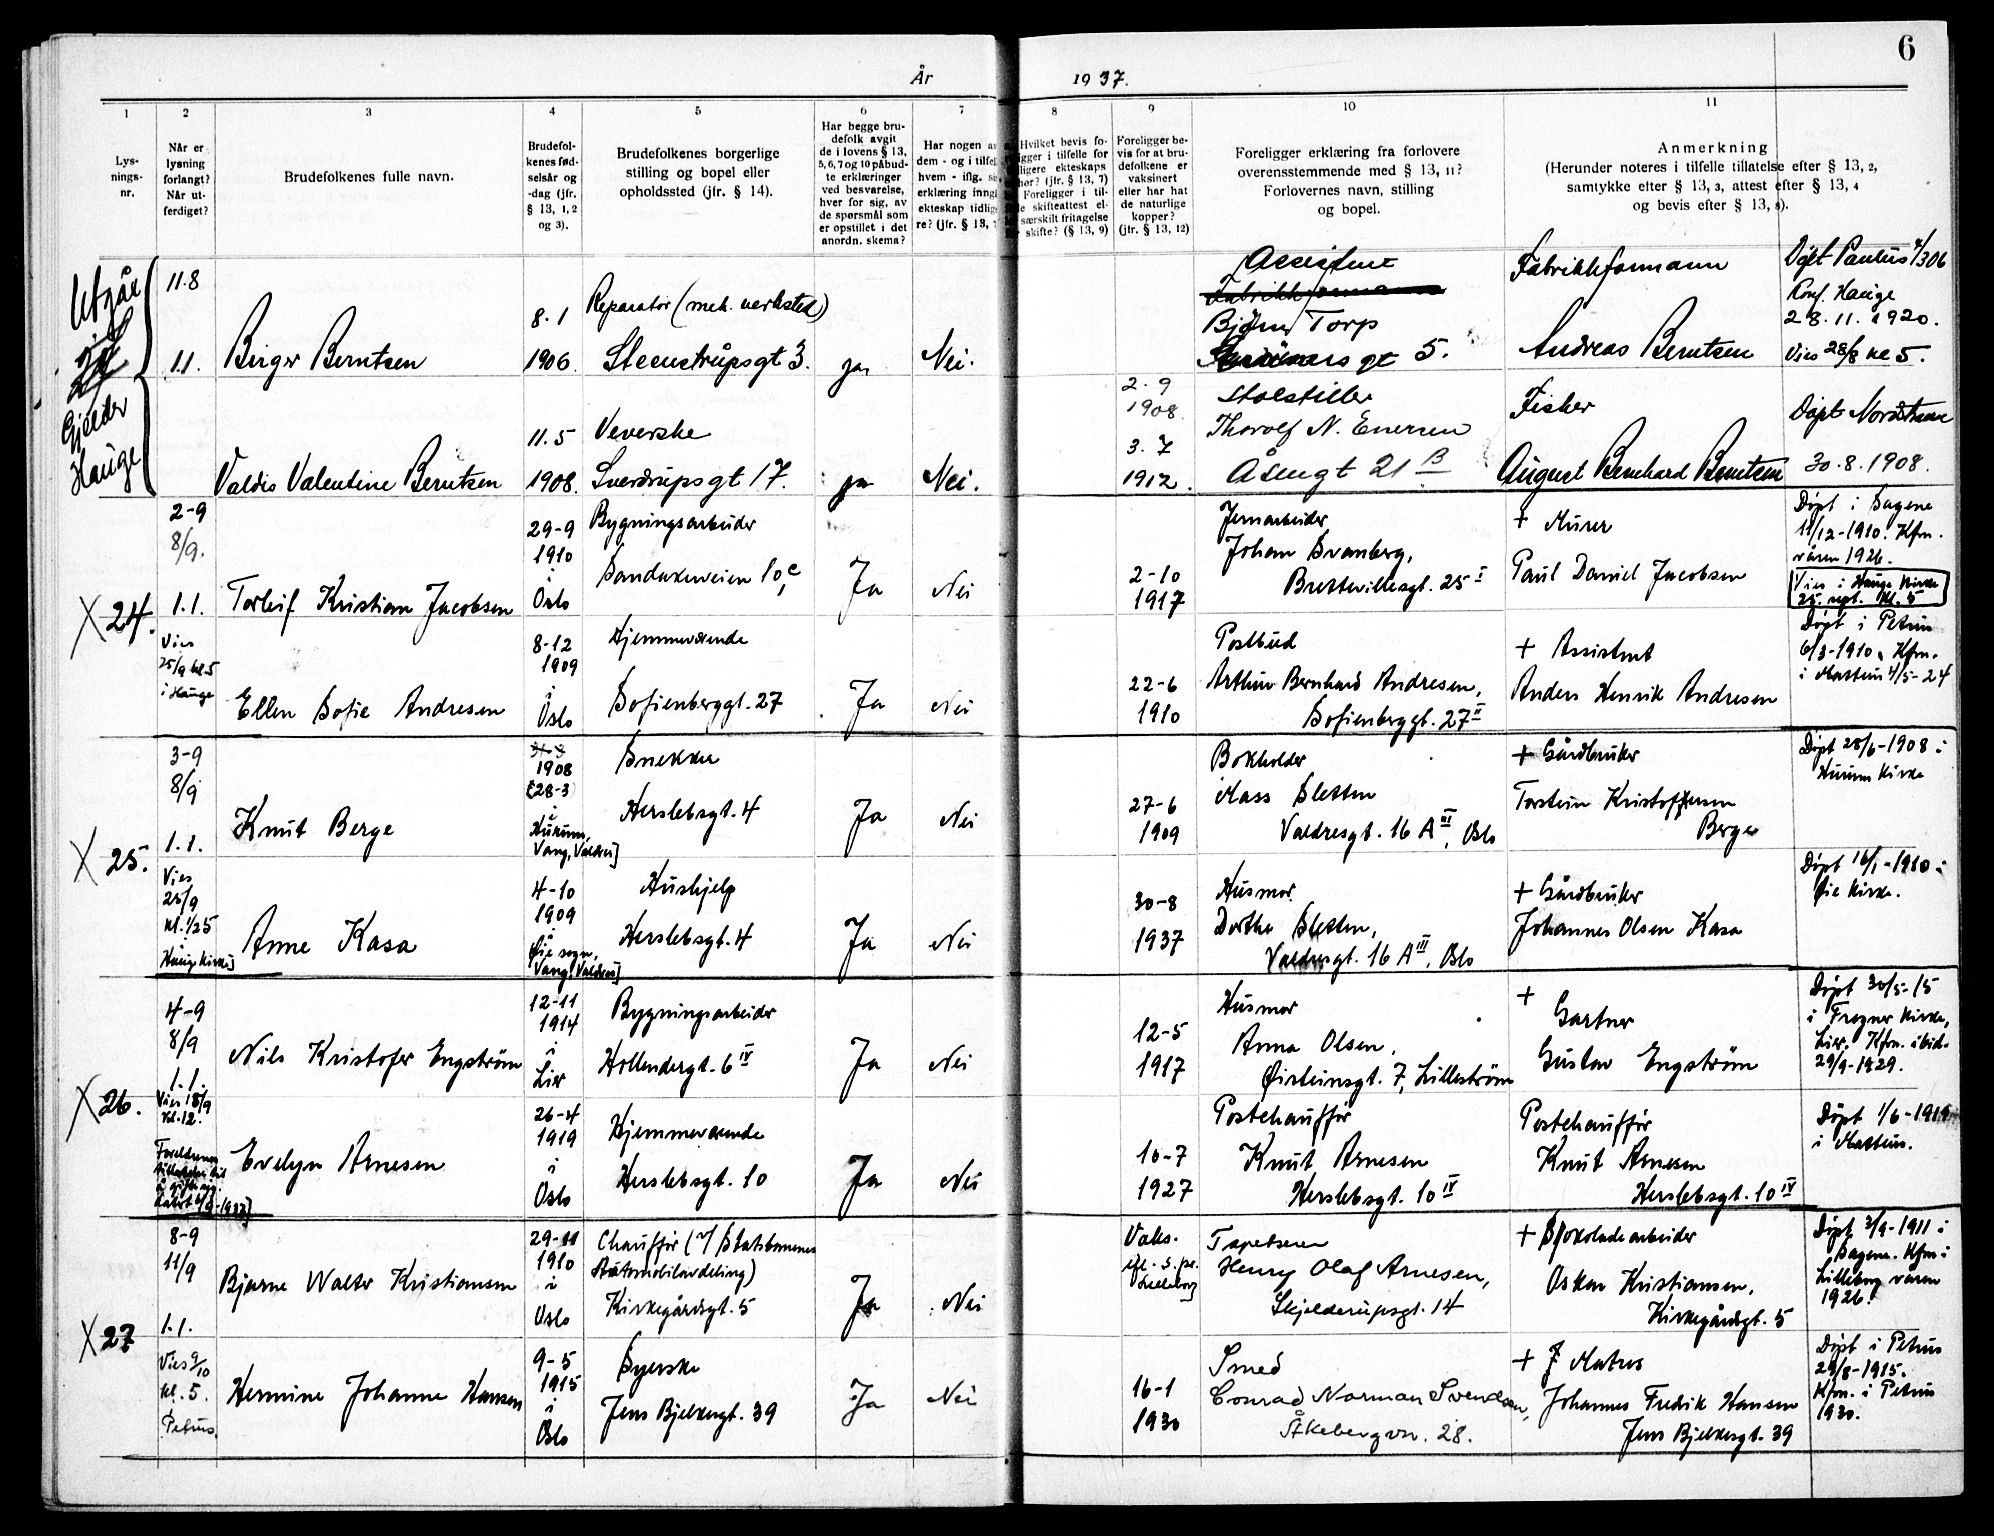 6
År 1937.
1
2
3
4
5
6
7
8
9
10
11
Lys-
nings-
nr.
Når er
lysning
forlangt?
Når ut-
ferdiget?
Brudefolkenes fulle navn.
Brudefol-
kenes fød-
selsår og
-dag (jfr.
§ 13, 1, 2
og 3).
Brudefolkenes borgerlige
stilling og bopel eller
opholdssted (jfr. § 14).
Har begge bru-
defolk avgit
de i lovens § 13,
5, 6, 7 og 10 påbud-
te erklæringer
ved besvarelse,
hver for sig, av
de spørsmål som
er opstillet i det
anordn. skema?
Har nogen av
dem - og i tilfel
hvem - iflg. si
erklæring inngå
ekteskap tidlig
re? (jfr. § 13,
Hvilket bevis fo-
igger i tilfelle for
ligere ekteskaps
hør? (jfr. § 13, 7)
Foreligger i til-
le skifteattest el-
særskilt fritagelse
skifte? (§ 13, 9)
Foreligger be-
vis for at bru-
defolkene er
vaksinert
eller har hat
de naturlige
kopper?
(jfr. § 13, 12)
Foreligger erklæring fra forlovere
overensstemmende med § 13, 11?
Forlovernes navn, stilling
og bopel.
Anmerkning
(Herunder noteres i tilfelle tillatelse efter § 13, 2,
samtykke efter § 13, 3, attest efter § 13, 4
og bevis efter § 13, 8).
Utgår
Gjelder
Hauge
11.8
1.1.
Birger Berntsen
8.1
1906.
Reparatør (mek. verksted)
Steenstrupsgt 3.
ja
Nei.
Assistent
Bjørn Torp
5.
Fabrikkformann
Andreas Berntsen
Døpt Paulus 4/306
Konf. Hauge
28.11.1920.
Vies 28/8 kl 5.
Valdis Valentine Berntsen
11.5
1908.
Veverske
Sverdrupsgt 17.
ja
Nei.
2.9
1908.
3.7
1912.
Stolstiller
Thorolf N. Enersen
Åsengt 21 B
Fisker
August Bernhard Berntsen
Døpt Nordstrand
30.8.1908.
X 24.
2-9
8/9.
1.1.
Vies
25/9 kl. 5
i Hauge
Torleif Kristian Jacobsen
29-9
1910
i
Oslo
Bygningsarbeider
Sandakerveien 10c
Ja
Nei
2-10
1917
Jernarbeider
Johan Svanberg,
Brettevillesgt. 25 I
+ Murer
Paul Daniel Jacobsen
Døpt i Sagene
11/12-1910. Kfm.
våren 1926.
Vies i Hauge Kirke
25. sept. kl. 5
Ellen Sofie Andresen
8-12
1909
i
Oslo
Hjemmeværende
Sofienberggt. 27
Ja
Nei
22-6
1910
Postbud
Arthur Bernhard Andresen,
Sofienberggt. 27 II
+ Assistent
Anders Henrik Andresen
Døpt i Petrus
6/3-1910. Kfm.
i Matteus 4/5-24
X 25.
3-9
8/9
1.1.
Vies
25/9
kl. 1/2 5
i
Hauge kirke]
Knut Berge
1908
(28-3)
i
Hurum,
Vang, Valdres]
Snekker
Herslebsgt. 4
Ja
Nei
27-6
1909
Bokholder
Mass Sletten
Valdresgt. 16 A III, Oslo
+ Gårdbruker
Torstein Kristoffersen
Berge
Døpt 28/6-1908 i
Hurum Kirke
Anne Kasa
4-10
1909
i
Øie sogn,
Vang, Valdres]
Hushjelp
Herslebsgt. 4
Ja
Nei
30-8
1937
Husmor
Dorthe Sletten,
Valdresgt. 16 A III, Oslo
+ Gårdbruker
Johannes Olsen Kasa
Døpt 16/1-1910 i
Øie Kirke.
X 26.
4-9
8/9
1.1.
Vies 18/9
kl. 12.
Foreldrenes
tillatelse til
Nils Kristofer Engström
12-11
1914
i
Lier
Bygningsarbeider
Hollendergt. 6 IV
Ja
Nei
12-5
1917
Husmor
Anna Olsen,
Øisteinsgt. 7, Lilleström
+
Gartner
Gustav Engström
Døpt 30/5-15
i Frogner Kirke,
Lier. Kfm. ibid.
29/9-1929.
Evelyn Arnesen
26-4
1919
i
Oslo
Hjemmeværende
Herslebsgt. 10
Ja
Nei
10-7
1927
Postchauffør
Knut Arnesen
Herslebsgt. 10 IV
Postchauffør
Knut Arnesen
Herslebsgt. 10 IV
Døpt 1/6-1919
i Matteus.
X 27
8-9
11/9
1.1.
Vies 9/10
kl. 5.
Petrus.
Bjarne Walter Kristiansen
29-11
1910
i
Oslo
Chauffør (v/ Statsbanenes
Automobilavdeling)
Kirkegårdsgt. 5
Ja
Nei
Vaks.
Tapetserer
Henry Olaf Arnesen,
Skjelderupsgt. 14
+ Sjokoladearbeider
Oskar Kristiansen,
Kirkegårdsgt. 5
Døpt 3/9-1911 i
Sagene. Kfm i
Lilleborg våren
1926.
Hermine Johanne Hansen
9-5
1915
i
Oslo
Syerske
Jens Bjelkesgt. 39
Ja
Nei
16-1
1930
Smed
Conrad Norman Svendsen,
Åkebergvn. 28.
+ Matros
Johannes Fredrik Hansen
Jens Bjelkesgt. 39
Døpt i Petrus
29/8-1915.
Kfm. i Petrus
1930.